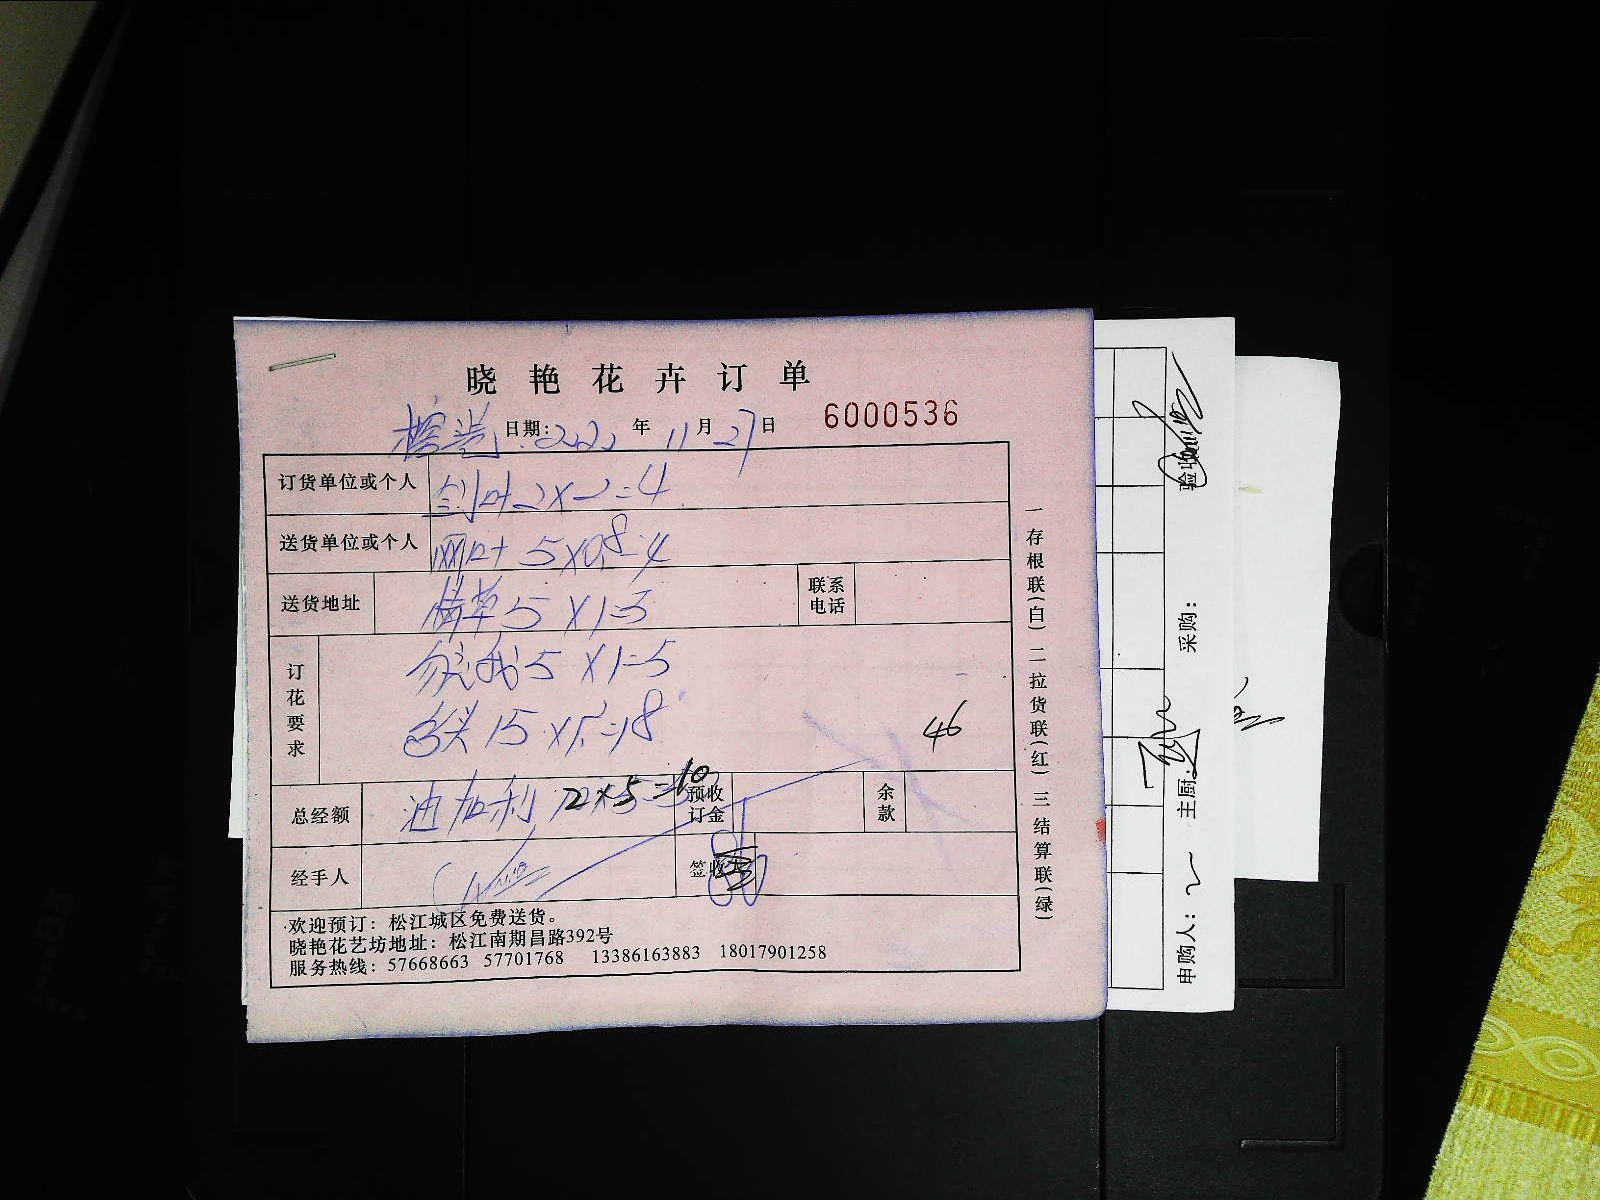 晓艳花卉订单
日期: 2022 年 11 月 27 日 6000536
订货单位或个人 剑叶 2×2=4
送货单位或个人 5×0.8=4
送货地址 5×1=5 联系电话
订花要求 勿忘我 5×1=5
多头 15×1.2=18
46
总经额 油加利 2×5=10 预收订金 余款
经手人 签收
欢迎预订：松江城区免费送货。
晓艳花艺坊地址：松江南期昌路392号
服务热线：57668663 57701768 13386163883 18017901258
一存根联(白) 二拉货联(红) 三结算联(绿)
申购人： 主厨： 采购： 验收